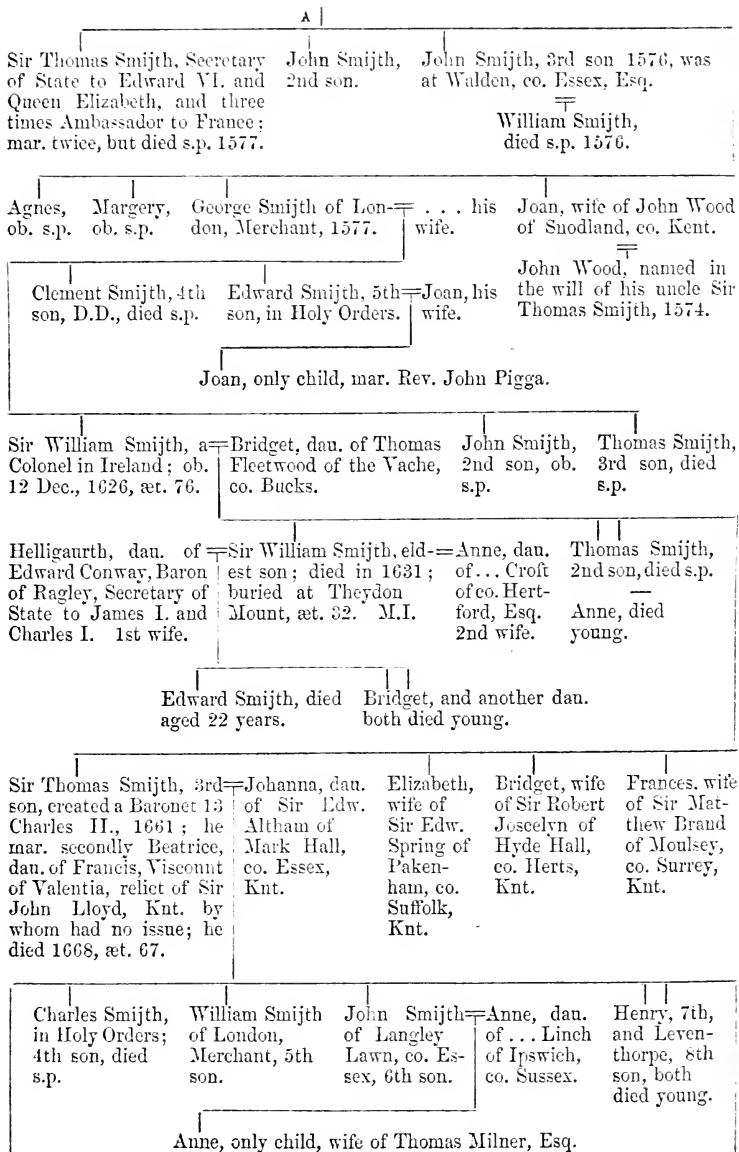 A
Sir Thomas Smijth, Secretary
of State to Edward VI. and
Queen Elizabeth, and three
times Ambassador to France;
mar. twice, but died s.p. 1577.
John Smijth,
2nd son.
John Smijth, 3rd son 1576, was
at Walden, co. Essex, Esq.
William Smijth,
died s.p. 1576.
Agnes,
ob. s.p.
Margery,
ob. s.p.
George Smijth of Lon-
don, Merchant, 1577.
. . . his
wife.
Joan, wife of John Wood
of Snodland, co. Kent.
John Wood, named in
the will of his uncle Sir
Thomas Smijth, 1574.
Clement Smijth, 4th
son, D.D., died s.p.
Edward Smijth, 5th
son, in Holy Orders.
Joan, his
wife.
Joan, only child, mar. Rev. John Pigga.
Sir William Smijth, a
Colonel in Ireland; ob.
12 Dec., 1626, æt. 76.
Bridget, dau. of Thomas
Fleetwood of the Vache,
co. Bucks.
John Smijth,
2nd son, ob.
s.p.
Thomas Smijth,
3rd son, died
s.p.
Helligaurth, dau. of
Edward Conway, Baron
of Ragley, Secretary of
State to James I. and
Charles I. 1st wife.
Sir William Smijth, eld-
est son; died in 1631;
buried at Theydon
Mount, æt. 32. M.I.
Anne, dau.
of . . . Croft
of co. Hert-
ford, Esq.
2nd wife.
Thomas Smijth,
2nd son, died s.p.
—
Anne, died
young.
Edward Smijth, died
aged 22 years.
Bridget, and another dau.
both died young.
Sir Thomas Smijth, 3rd
son, created a Baronet 13
Charles II., 1661; he
mar. secondly Beatrice,
dau. of Francis, Viscount
of Valentia, relict of Sir
John Lloyd, Knt. by
whom had no issue; he
died 1668, æt. 67.
Johanna, dau.
of Sir Edw.
Altham of
Mark Hall,
co. Essex,
Knt.
Elizabeth,
wife of
Sir Edw.
Spring of
Paken-
ham, co.
Suffolk,
Knt.
Bridget, wife
of Sir Robert
Joscelyn of
Hyde Hall,
co. Herts,
Knt.
Frances, wife
of Sir Mat-
thew Brand
of Moulsey,
co. Surrey,
Knt.
Charles Smijth,
in Holy Orders;
4th son, died
s.p.
William Smijth
of London,
Merchant, 5th
son.
John Smijth
of Langley
Lawn, co. Es-
sex, 6th son.
Anne, dau.
of . . . Linch
of Ipswich,
co. Sussex.
Henry, 7th,
and Leven-
thorpe, 8th
son, both
died young.
Anne, only child, wife of Thomas Milner, Esq.